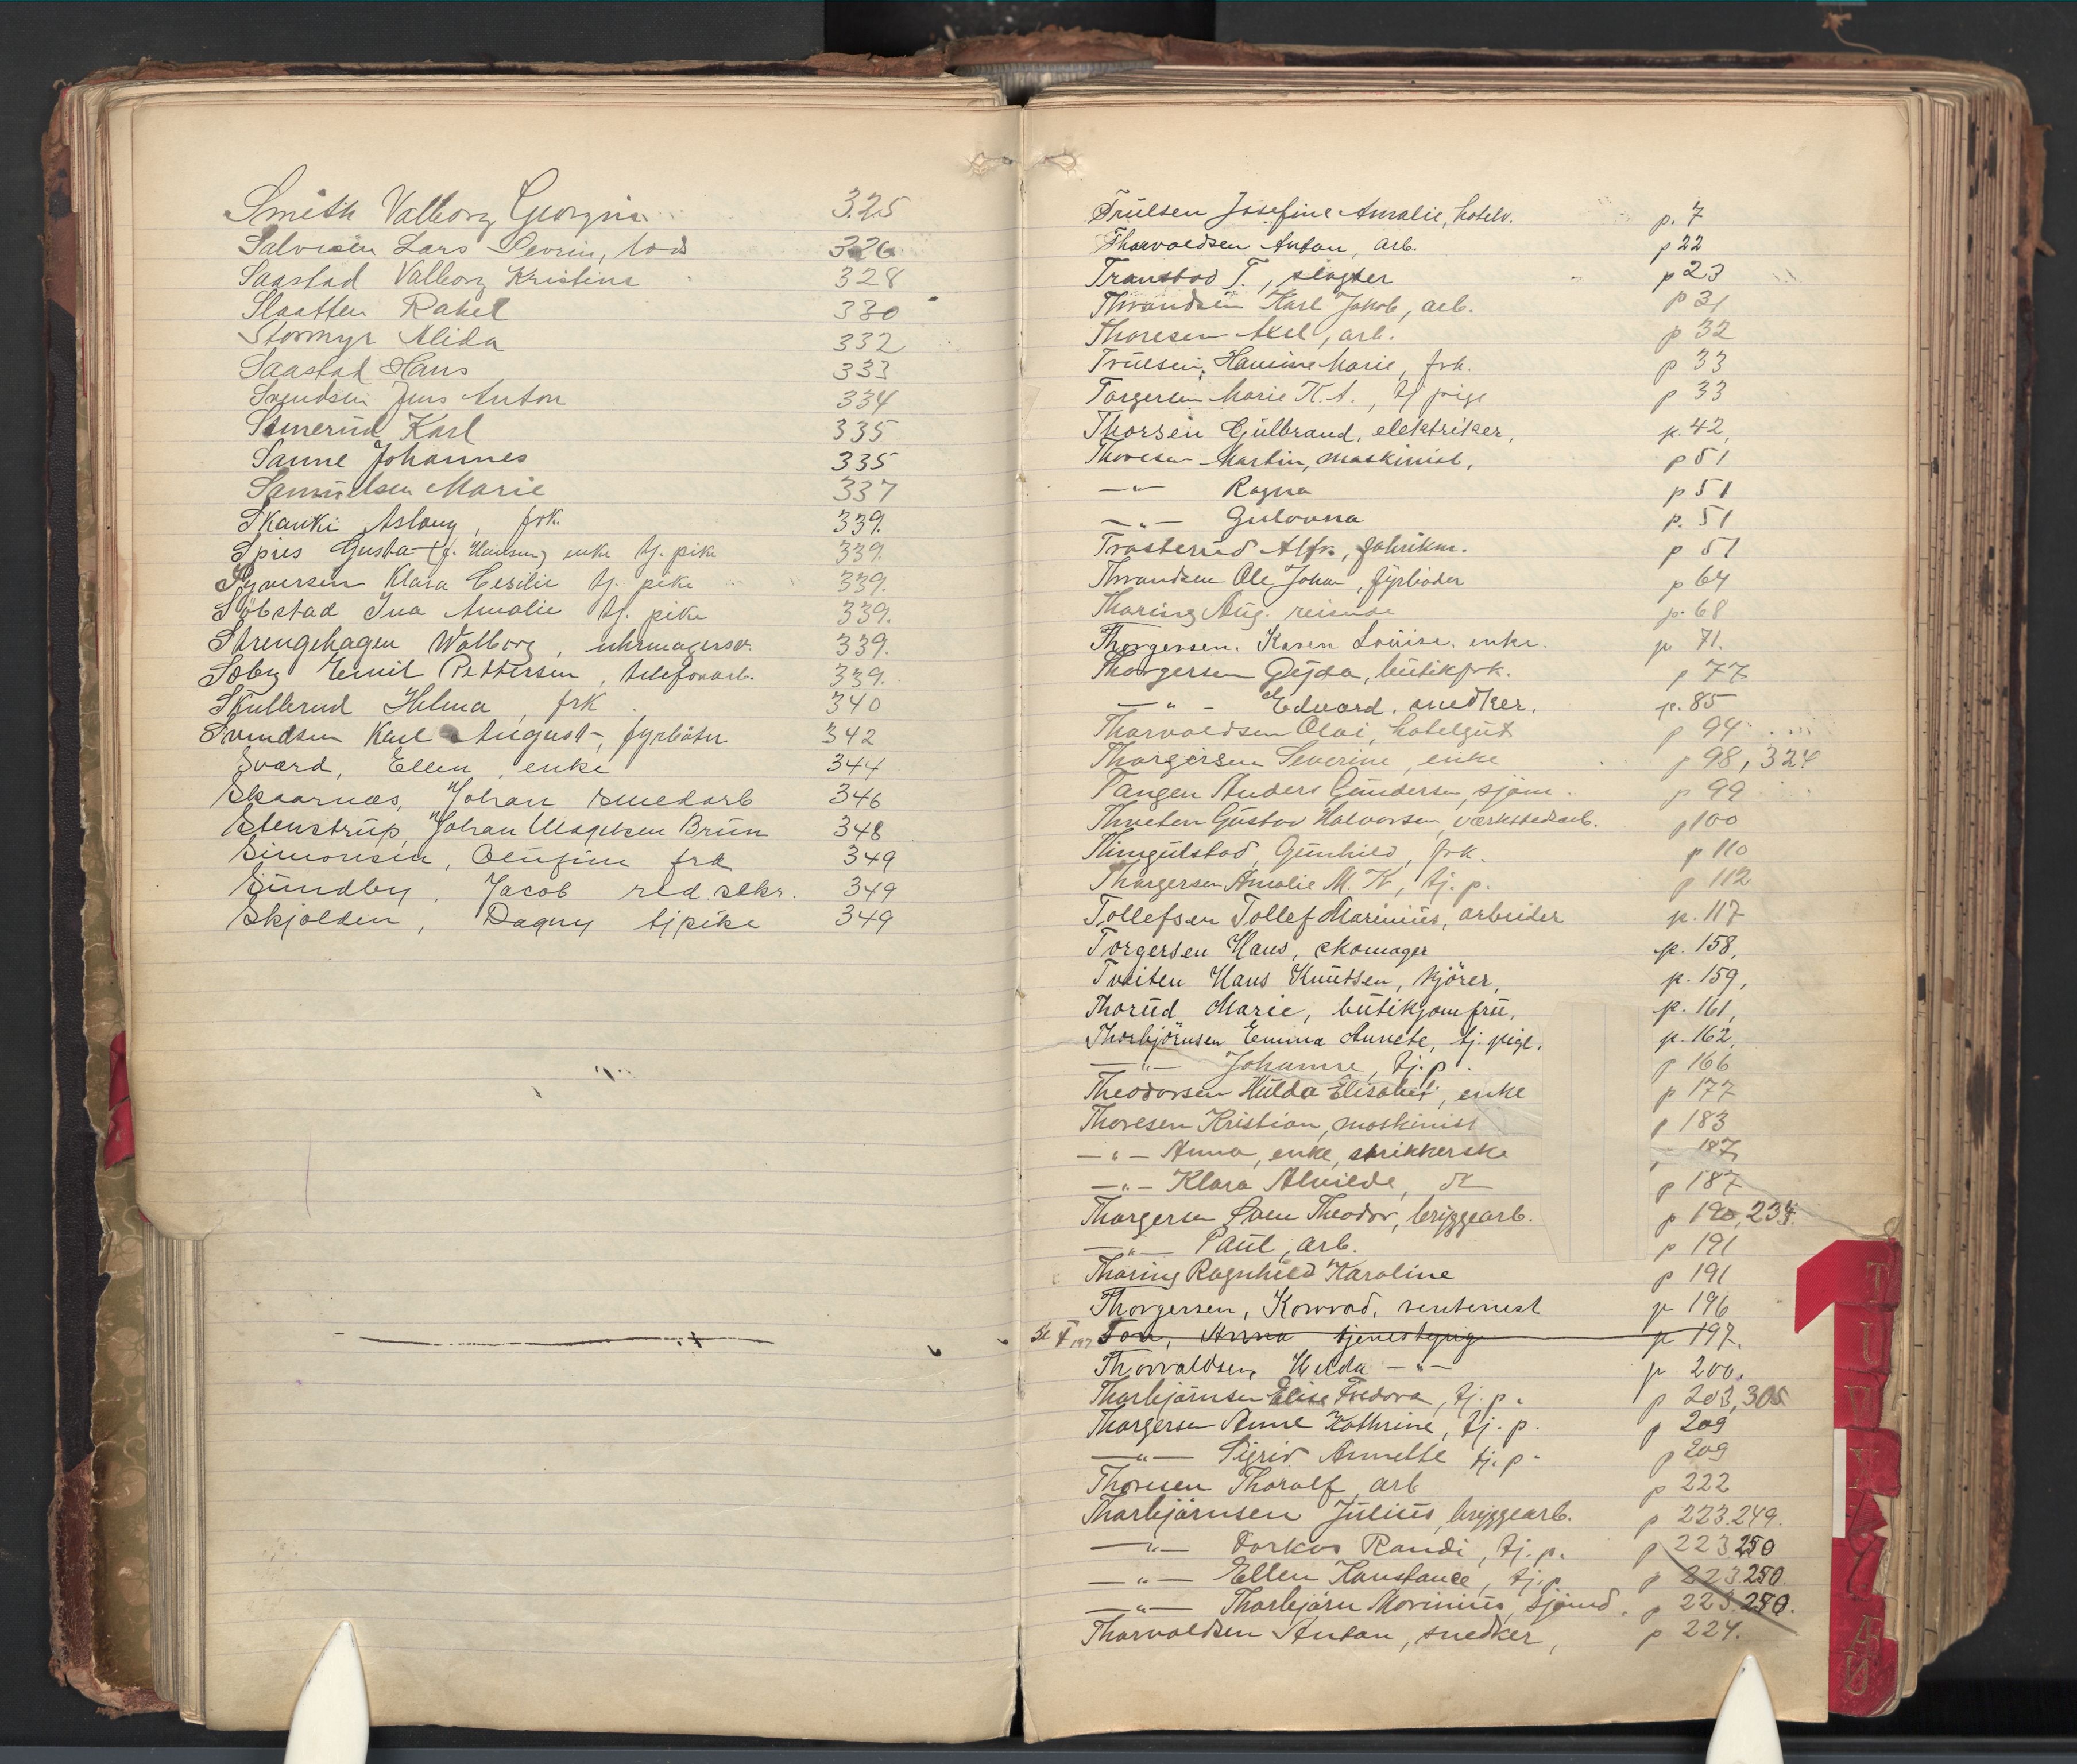 Smith Valborg Georgine 325
Salvesen Lars Severin, lods 326
Saastad Valborg Kristine 328
Slaatten Rakel 330
Stormyr Alida 332
Saastad Hans 333
Svendsen Jens Anton 334
Karl 335
Sanne Johannes 335
Samuelsen Marie 337
Skauki Aslaug, frk. 339.
Spies Gusta (f. Hansen) enke tj. pike 339.
Syversen Klara Cesilie tj. pike 339.
Söbstad Ina Amalie tj. pike 339.
Strengehagen Walborg, uhrmagersv. 339.
Soby Emil Pettersen, telefonarb. 339.
Skullerud Helma, frk. 340
Svendsen Karl August, fyrbøter 342
Sværd, Ellen, enke 344
Skaarnæs, Johan smedarb 346
Stenstrup, Johan Brun 348
Simonsen, Olufine frk 349
Sundby, Jacob red. sekr. 349
Skjolden, Dagny tjpike 349
Trulsen Josefine Amalie, hotelv. p. 7
Thorvaldsen Anton, arb. p 22
Transtad T., slagter p 23
Thrandsen Karl Jakob, arb. p 31
Thoresen Axel, arb. p 32
Trulsen, Hansine Marie, frk. p 33
Torgersen Marie K. A., tj pige p 33
Thorsen Gulbrand, elektriker, p. 42,
Thoresen Martin, maskinist, p 51
—"— Ragna p 51
—"— Gulovna p. 51
Trosterud Alfr., fabrikm. p 51
Thrandsen Ole Johan, fyrbøder p 64
Thoring Aug. reisende p. 68
Thorgersen, Karen Louise, enke. p 71.
Thorgersen Gyda, butikfrk. p 77
—"— Edvard, snedker. p. 85
Thorvaldsen Olai, hotelgut p 94
Thorgersen Severine, enke p 98, 324
Tangen Anders Gundersen, sjøm. p 99
Thveten Gustav Halvorsen, værkstedarb. p 100
Gunhild, frk. p 110
Thorgersen Amalie M. K, tj. p. p 112
Tollefsen Tollef Marinius, arbeider p. 117
Torgersen Hans, skomager p. 158,
Tveiten Hans Knutsen, kjörer, p. 159,
Thorud Marie, butikjomfru, p. 161,
Thorbjörnsen Emma Annete, tj. pige. p. 162,
—"— Johanne, tj. p. p 166
Theodorsen Hulda Elisabet, enke p 177
Thoresen Kristian, maskinist p 183
—"— Anna, enke, strikkerske 187
—"— Klara Alvilde, do p 187
Thorgersen Sven Theodor, bryggearb. p 190, 234.
—"— Paul, arb. p 191
Thoring Ragnhild Karoline p 191
Thorgersen, Konrad, rentenist p 196
Se F 197 Fon, Anna tjenestepige p 197.
Thorvaldsen, Hulda —"— p 200.
Thorbjörnsen Elise Fredova, tj. p. p 203, 305
Thorgersen Anne Kathrine, tj. p. p 209
—"— Sigrid Annette tj. p. p 209
Thoresen Thoralf, arb p 222
Thorbjörnsen Julius, bryggearb. p 223. 249.
—"— Torkos Randi, tj. p. p 223 250
—"— Ellen Konstance, tj. p p 223. 250.
—"— Thorbjörn Marinius, sjömd. p 223. 250.
Thorvaldsen Anton, snedker, p 224.
T
U
V